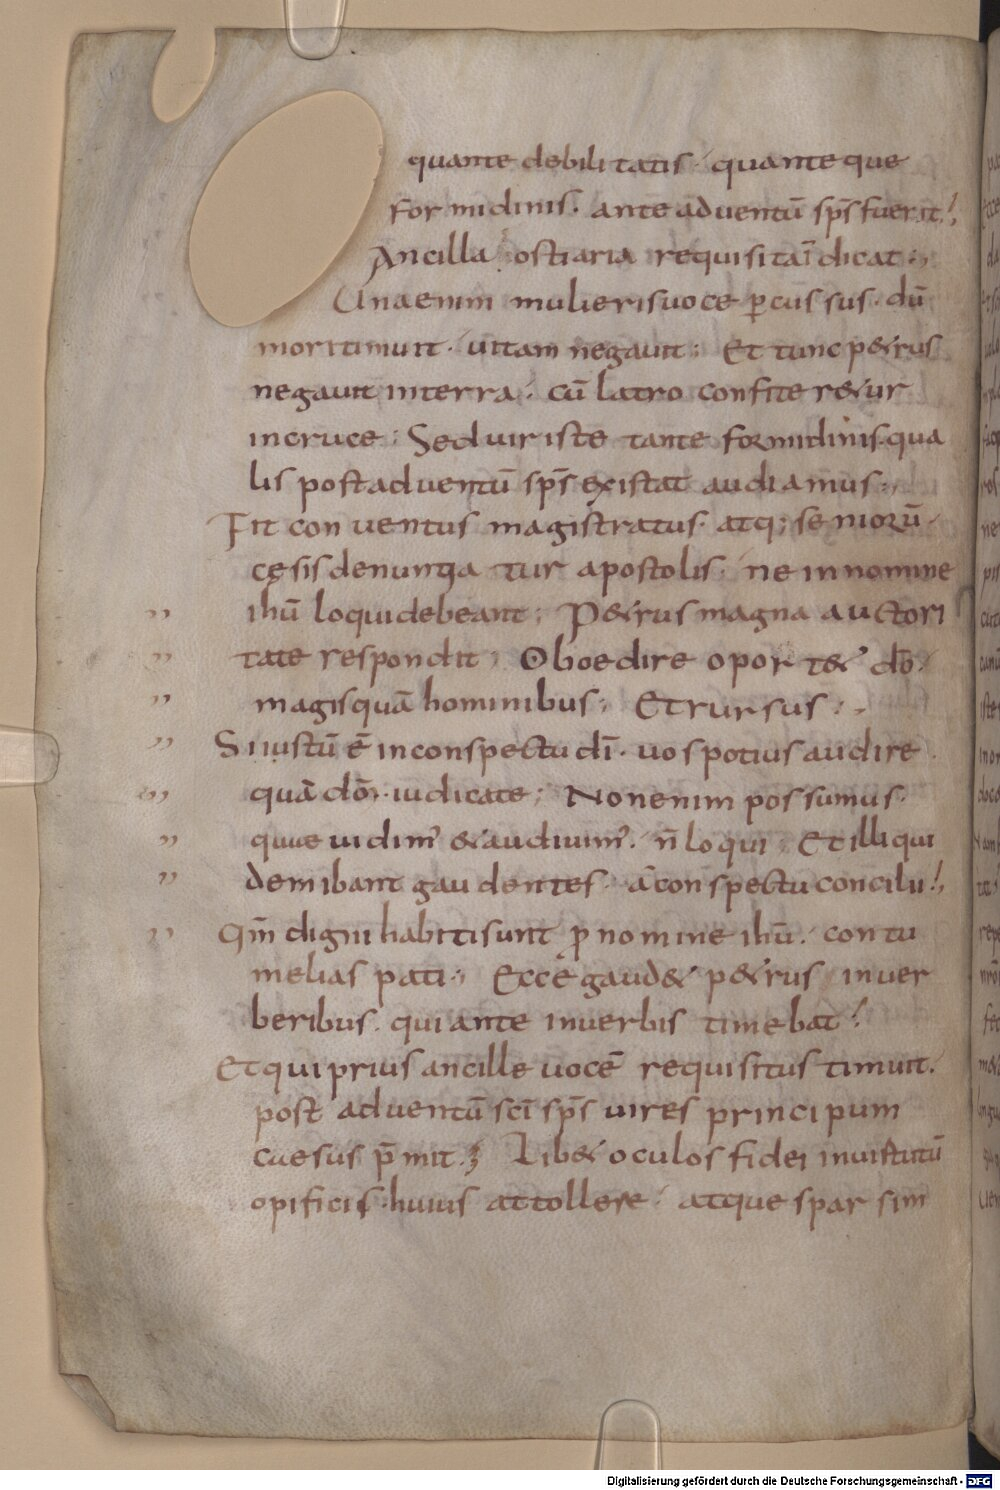 quante debilitatis. quanteque
formidinis. ante aduentū sp̄s fuerit;
Ancilla ostiaria requisita dicat;
Una enim mulieris uoce ꝑcussus. dū
mori timuit. uitam negauit; Et tunc petrus
negauit in terra. cū latro confiteretur
in cruce; Sed uir iste tante formidinis. qua
lis post aduentū sp̄s existat audiamus;
Fit conuentus magistratus. atq; seniorū.
cęsis denuntia tur apostolis. ne in nomine
ihū loqui debeant; Petrus magna auctori
tate respondit; Oboedire oportet dō
magis quā hominibus; Et rursus;
Si iustū ē in conspectu dī. uos potius audire
quā dm̄. iudicate; Non enim possumus.
quae uidim' & audiuim'. n̄ loqui; Et illi qui
dem ibant gaudentes. a conspectu concilii;
Qm̄ digni habiti sunt ꝓ nomine ihū. contu
melias pati; Ecce gaudet petrus in uer
beribus. qui ante in uerbis timebat;
Et qui prius ancille uocē requisitus timuit.
post aduentū scī sp̄s uires principum
caesus p̄mit; Libet oculos fidei in uirtutū
opificis huius attollere. atque sparsim
Digitalisierung gefördert durch die Deutsche Forschungsgemeinschaft - DFG